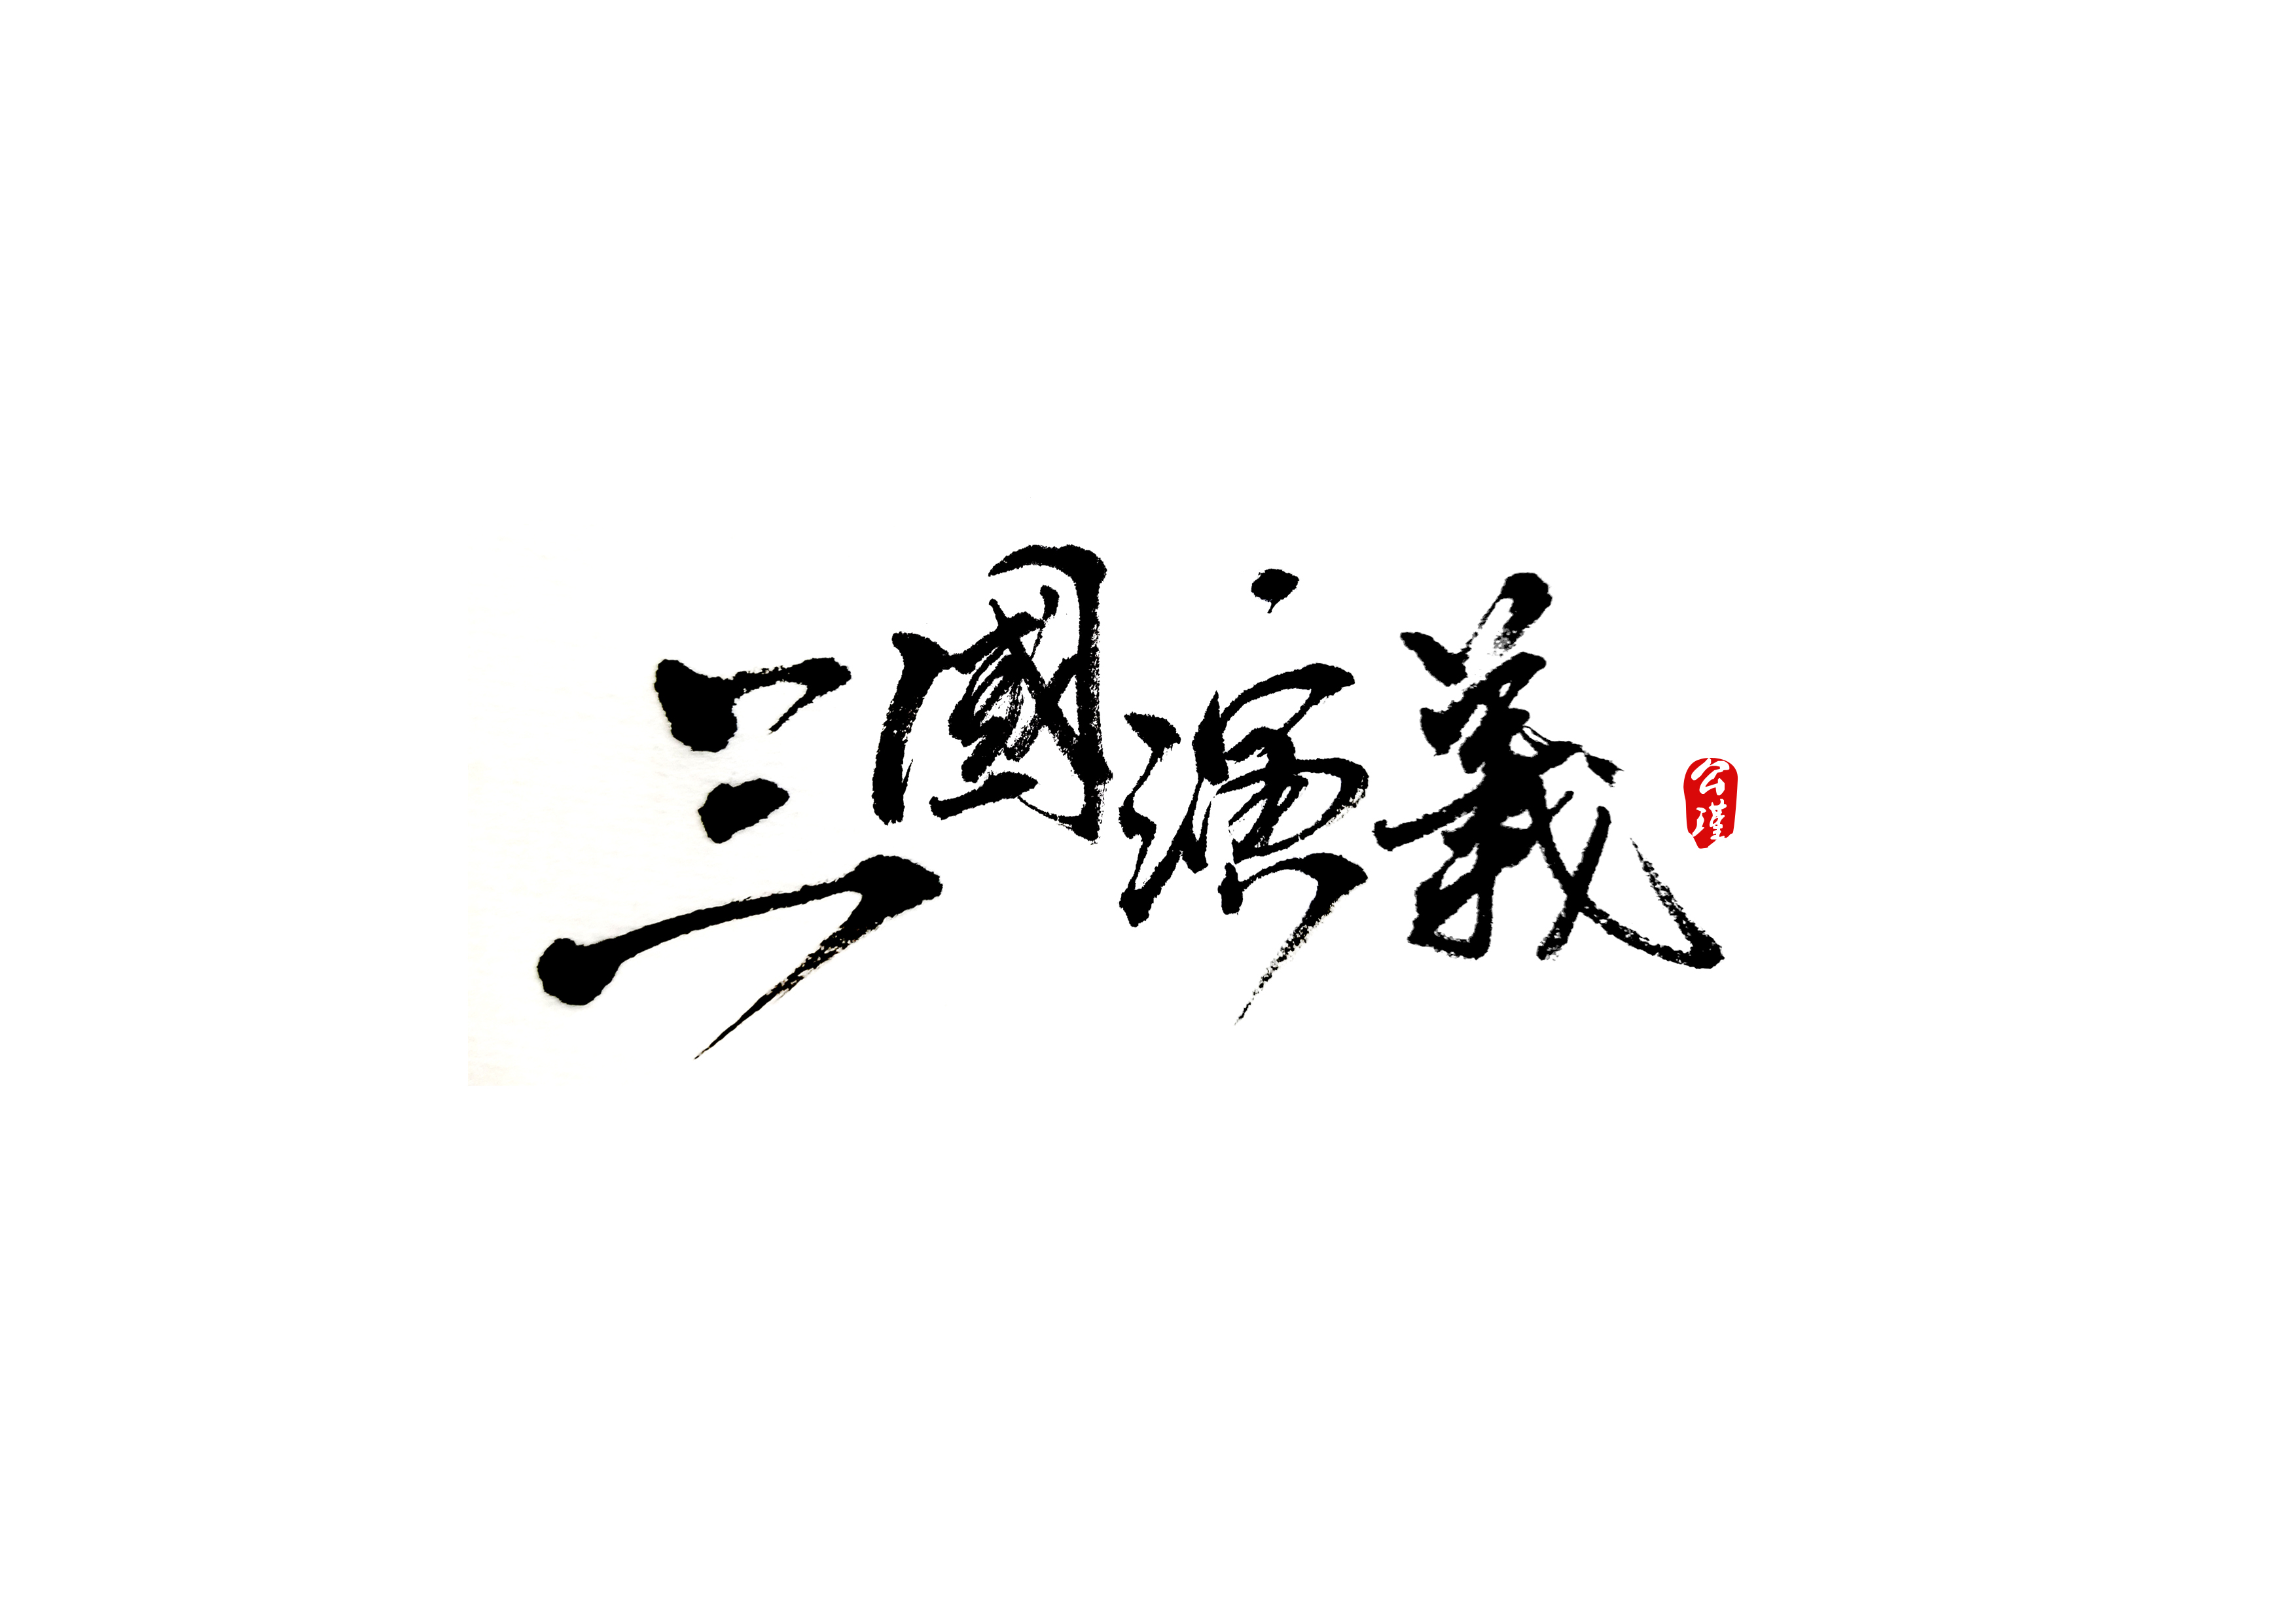 三國演義
公瑾